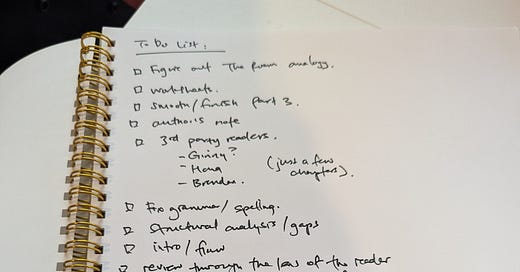 To Do List:
□ Figure out The Poem analogy.
□ worksheets.
□ smooth/finish Part 3.
□ author's note
□ 3rd party readers.
- Ginny?
- Hong (just a few
- Brendan. chapters).
□ grammar/spelling.
□ structural analysis/gaps
□ intro/
□ review through the lens of the reader